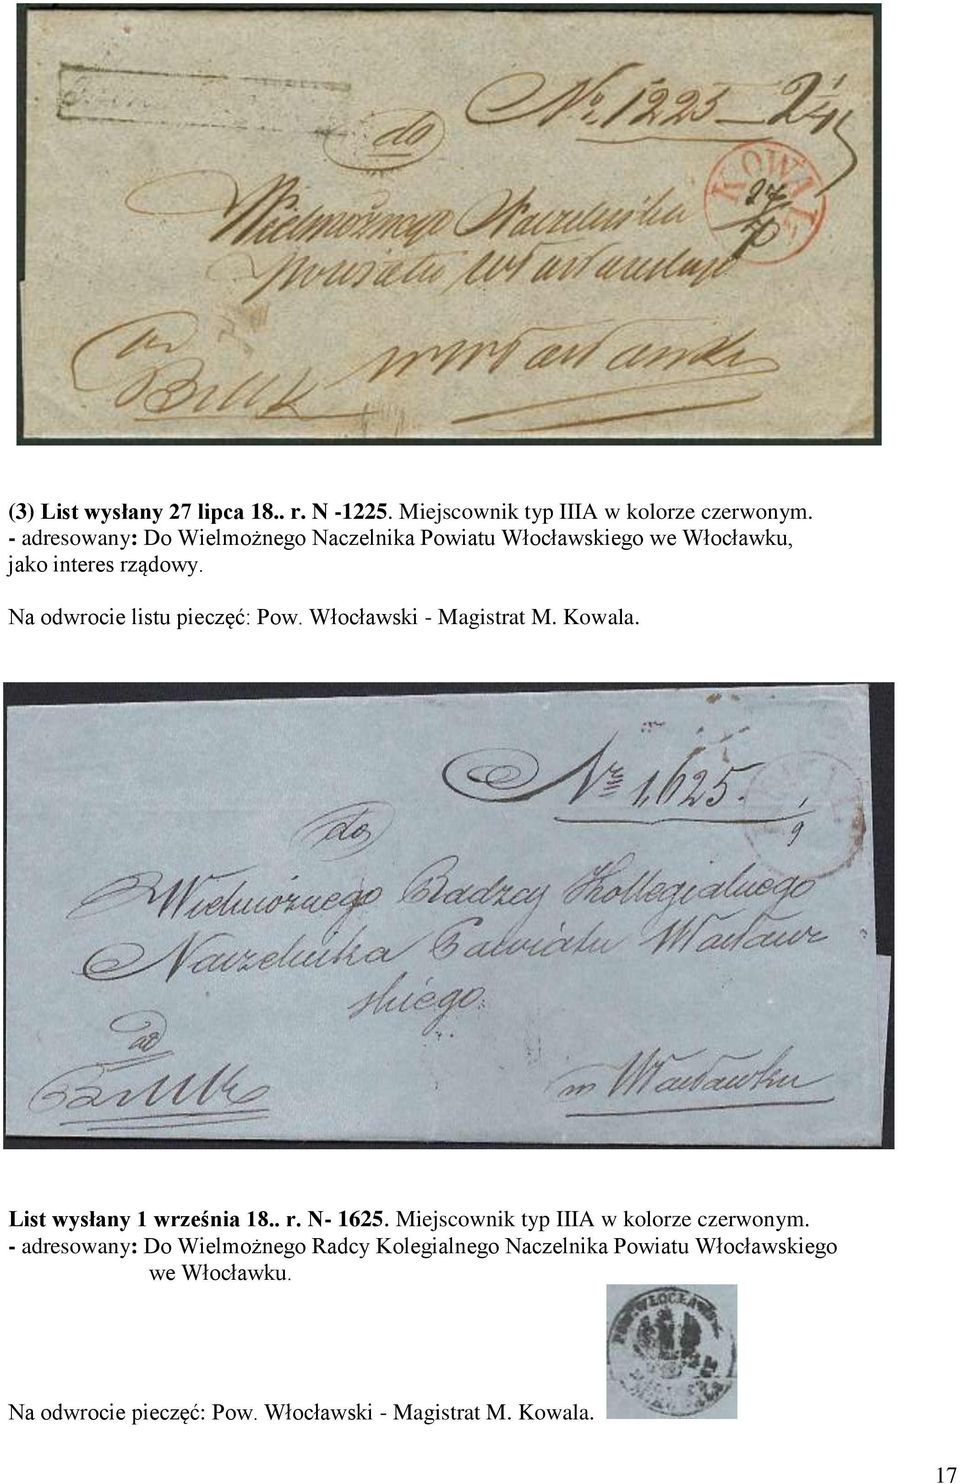 No. 1223 — 2/4 1
do
KOWAL
27/7
Wielmożnego Naczelnika
Powiatu Włocławskiego
w Włocławku
(3) List wysłany 27 lipca 18.. r. N -1225. Miejscownik typ IIIA w kolorze czerwonym.
- adresowany: Do Wielmożnego Naczelnika Powiatu Włocławskiego we Włocławku,
jako interes rządowy.
Na odwrocie listu pieczęć: Pow. Włocławski - Magistrat M. Kowala.
Nr 1,625.
1/9
do
Wielmożnego Radzcy Kollegialnego
Naczelnika Powiatu Włocław
skiego
w Włocławku
List wysłany 1 września 18.. r. N- 1625. Miejscownik typ IIIA w kolorze czerwonym.
- adresowany: Do Wielmożnego Radcy Kolegialnego Naczelnika Powiatu Włocławskiego
we Włocławku.
Na odwrocie pieczęć: Pow. Włocławski - Magistrat M. Kowala.
17